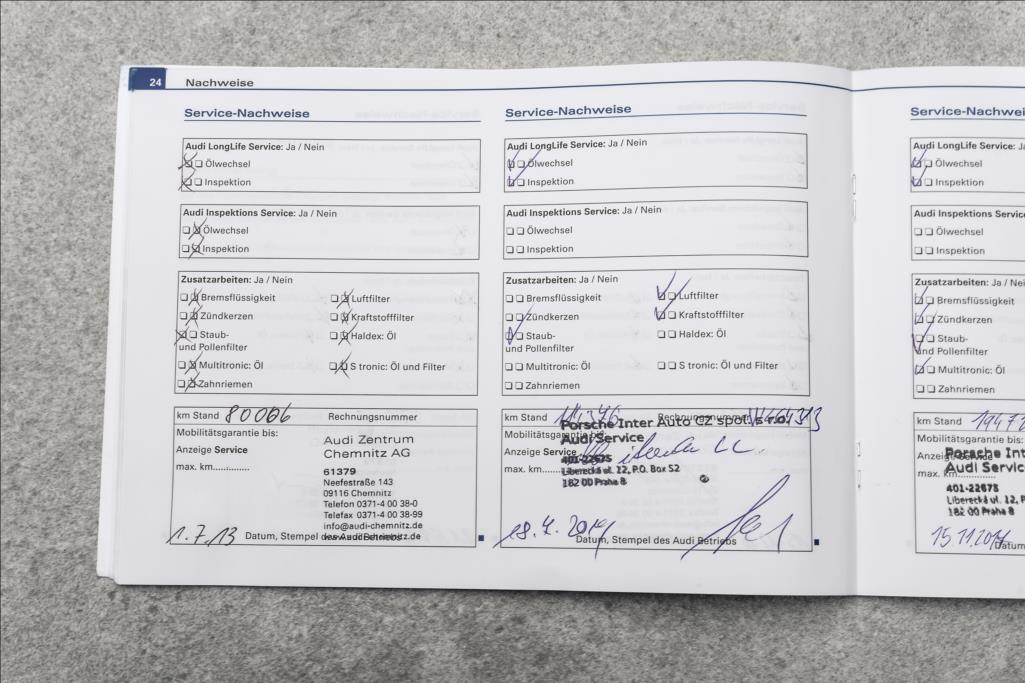 24 Nachweise
Service-Nachweise
Audi LongLife Service: Ja / Nein
Ölwechsel
Inspektion
Audi Inspektions Service: Ja / Nein
Ölwechsel
Inspektion
Zusatzarbeiten: Ja / Nein
Bremsflüssigkeit Luftfilter
Zündkerzen Kraftstofffilter
Staub- Haldex: Öl
und Pollenfilter
Multitronic: Öl S tronic: Öl und Filter
Zahnriemen
km Stand 80006 Rechnungsnummer
Mobilitätsgarantie bis:
Anzeige Service
max. km.............
Audi Zentrum
Chemnitz AG
61379
Neefestraße 143
09116 Chemnitz
Telefon 0371-4 00 38-0
Telefax 0371-4 00 38-99
info@audi-chemnitz.de
1.7.13 Datum, Stempel des Audi Betriebs
Service-Nachweise
Audi LongLife Service: Ja / Nein
Ölwechsel
Inspektion
Audi Inspektions Service: Ja / Nein
Ölwechsel
Inspektion
Zusatzarbeiten: Ja / Nein
Bremsflüssigkeit Luftfilter
Zündkerzen Kraftstofffilter
Staub- Haldex: Öl
und Pollenfilter
Multitronic: Öl S tronic: Öl und Filter
Zahnriemen
km Stand Rechnungsnummer
Mobilitätsgarantie bis:
Anzeige Service
max. km
Porsche Inter Auto CZ spol. s r.o.
Audi Service
401-22675
Liberecká ul. 12, P.O. Box 52
182 00 Praha 8
Datum, Stempel des Audi Betriebs
Service-Nachwei
Audi LongLife Service: Ja
Ölwechsel
Inspektion
Audi Inspektions Service
Ölwechsel
Inspektion
Zusatzarbeiten: Ja / Nein
Bremsflüssigkeit
Zündkerzen
Staub-
und Pollenfilter
Multitronic: Öl
Zahnriemen
km Stand
Mobilitätsgarantie bis:
Anzeige Service
max. km
Porsche Int
Audi Servic
401-22675
Liberecká ul. 12, P
182 00 Praha 8
15.11.2014 Datum